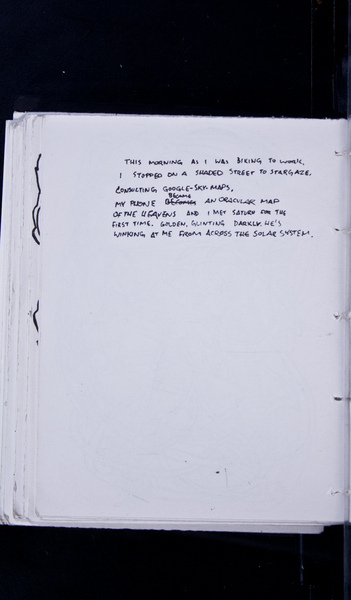 THIS MORNING AS I WAS BIKING TO WORK,
I STOPPED ON A SHADED STREET TO STARGAZE.
CONSULTING GOOGLE-SKY-MAPS,
BECAME
MY PHONE BECOMES AN ORACULAR MAP
OF THE HEAVENS AND I MET SATURN FOR THE
FIRST TIME. GOLDEN, GLINTING DARKLY. HE'S
WINKING AT ME FROM ACROSS THE SOLAR SYSTEM.